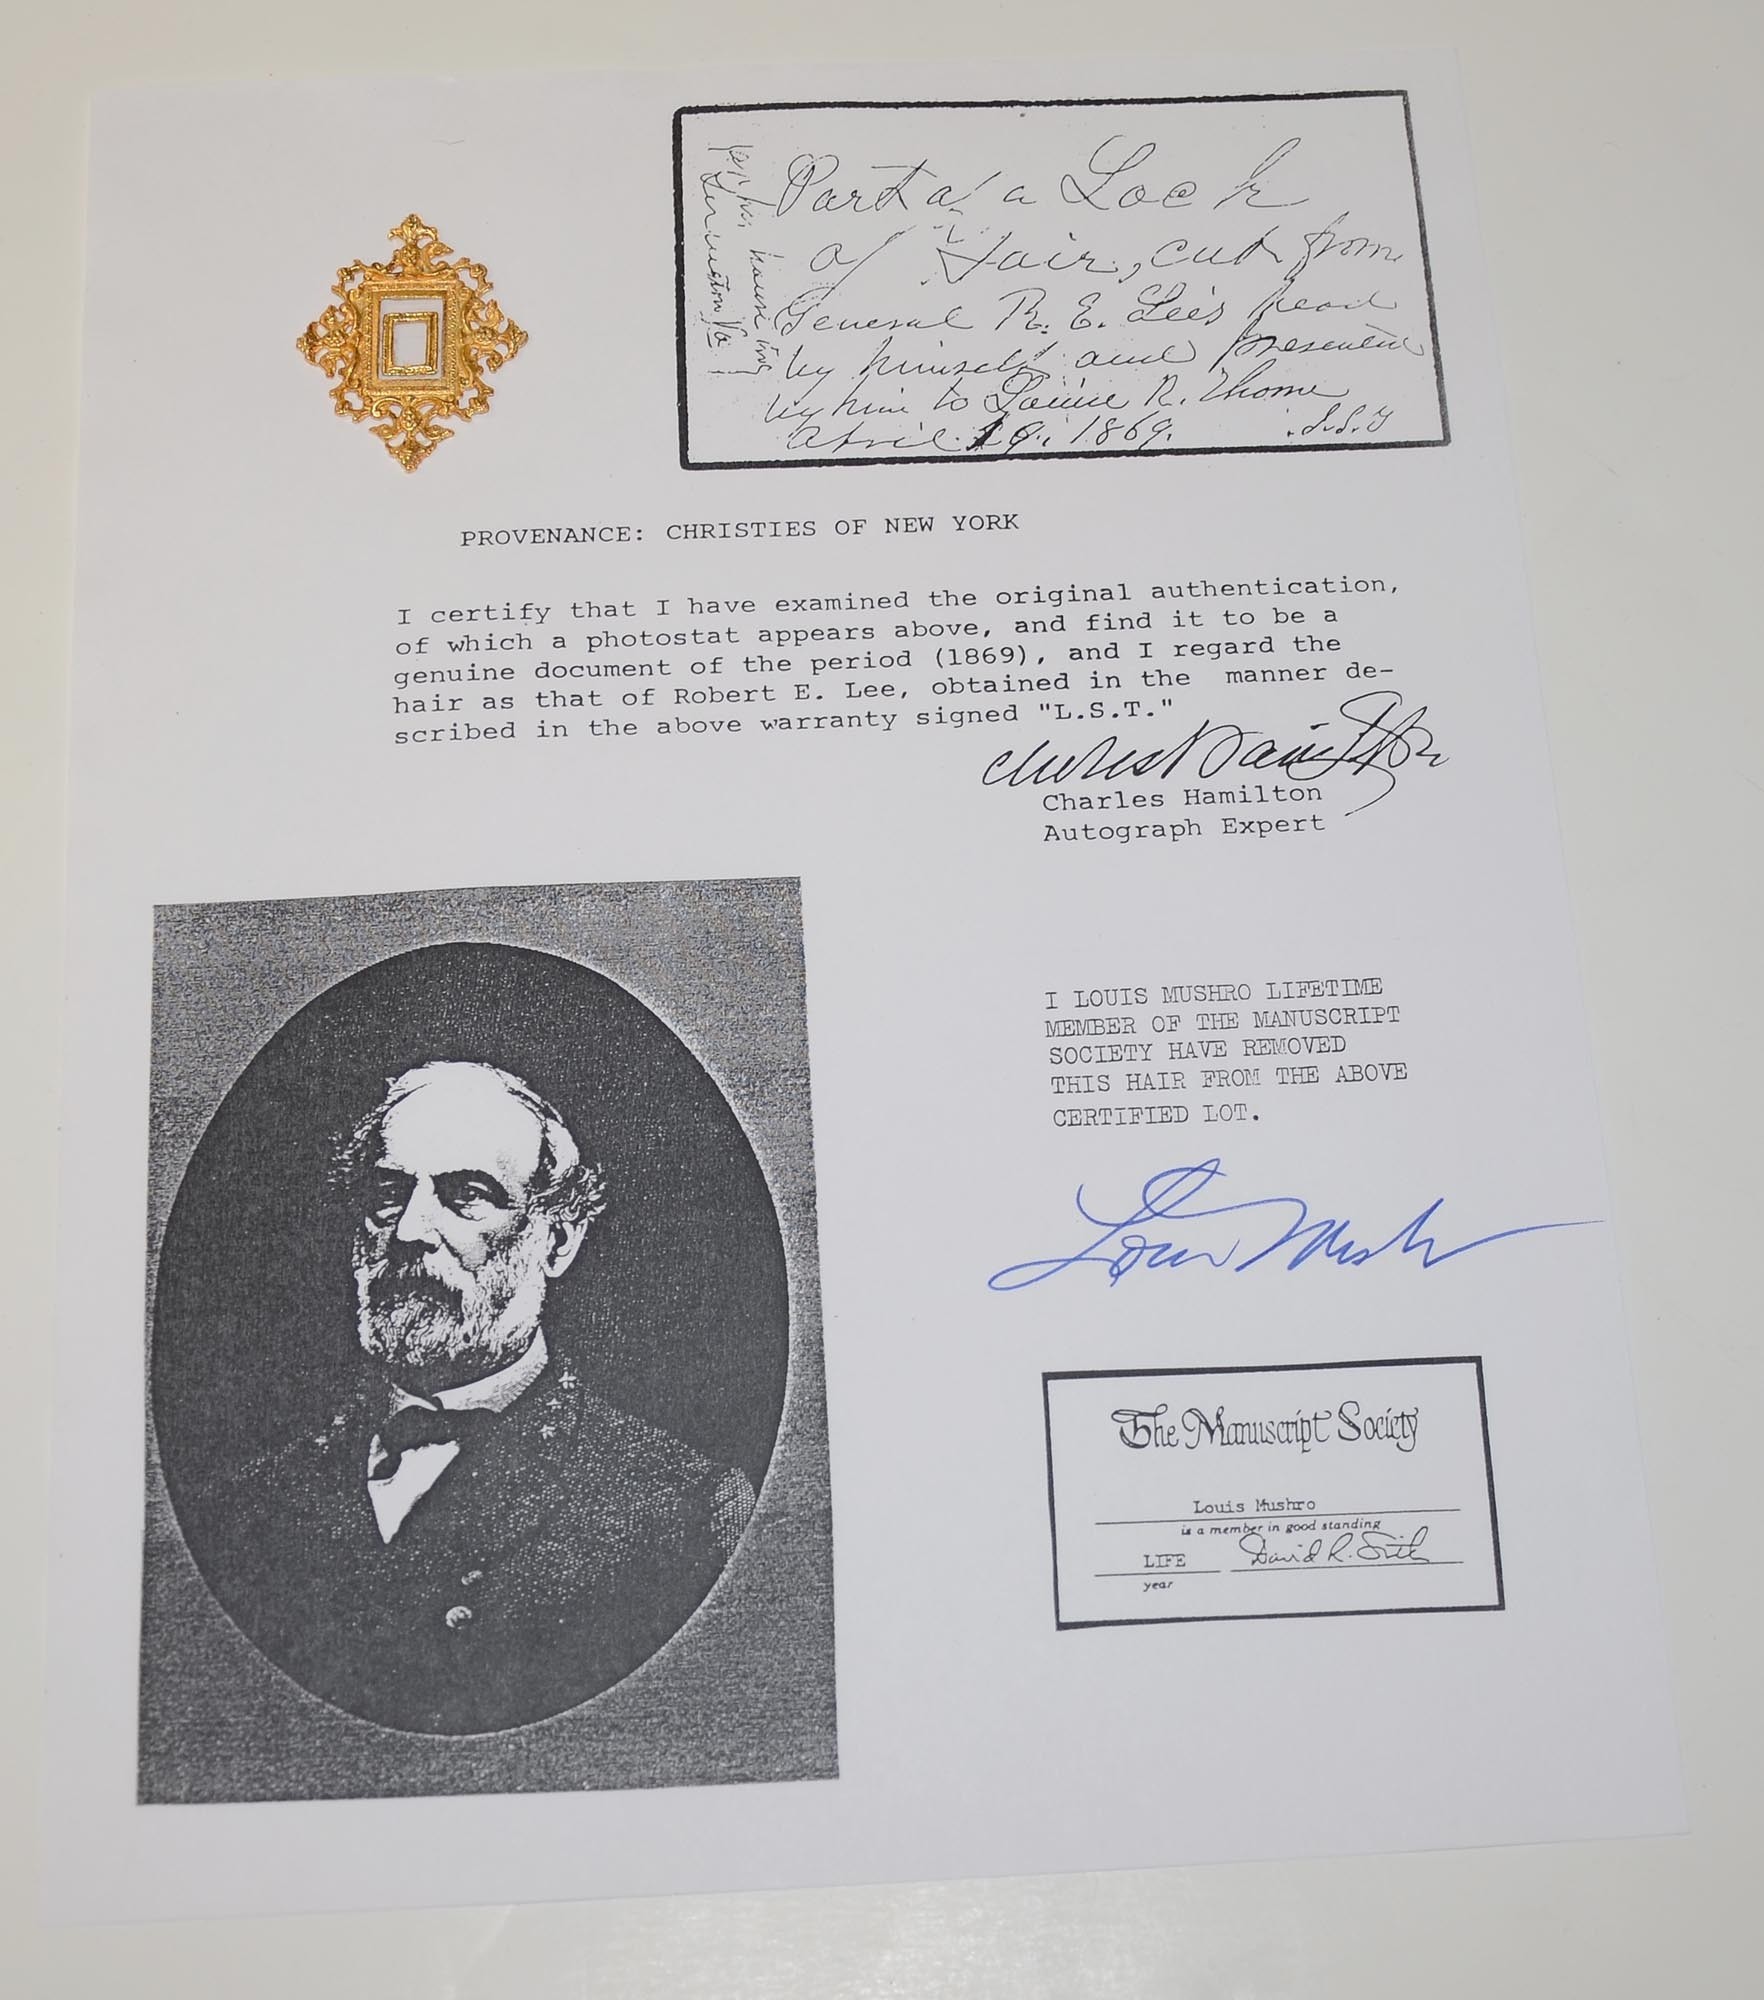 Part of a Lock
of Hair, cut from
General R. E. Lee's head
by himself and presented
by him to Louise R. Thome
April 19., 1869. .L.S.T
at his house in
Lexington Va
PROVENANCE: CHRISTIES OF NEW YORK
I certify that I have examined the original authentication,
of which a photostat appears above, and find it to be a
genuine document of the period (1869), and I regard the
hair as that of Robert E. Lee, obtained in the manner de-
scribed in the above warranty signed "L.S.T."
Charles Hamilton
Charles Hamilton
Autograph Expert
I LOUIS MUSHRO LIFETIME
MEMBER OF THE MANUSCRIPT
SOCIETY HAVE REMOVED
THIS HAIR FROM THE ABOVE
CERTIFIED LOT.
Louis Mushro
The Manuscript Society
Louis Mushro
is a member in good standing
LIFE David R. Smith
year